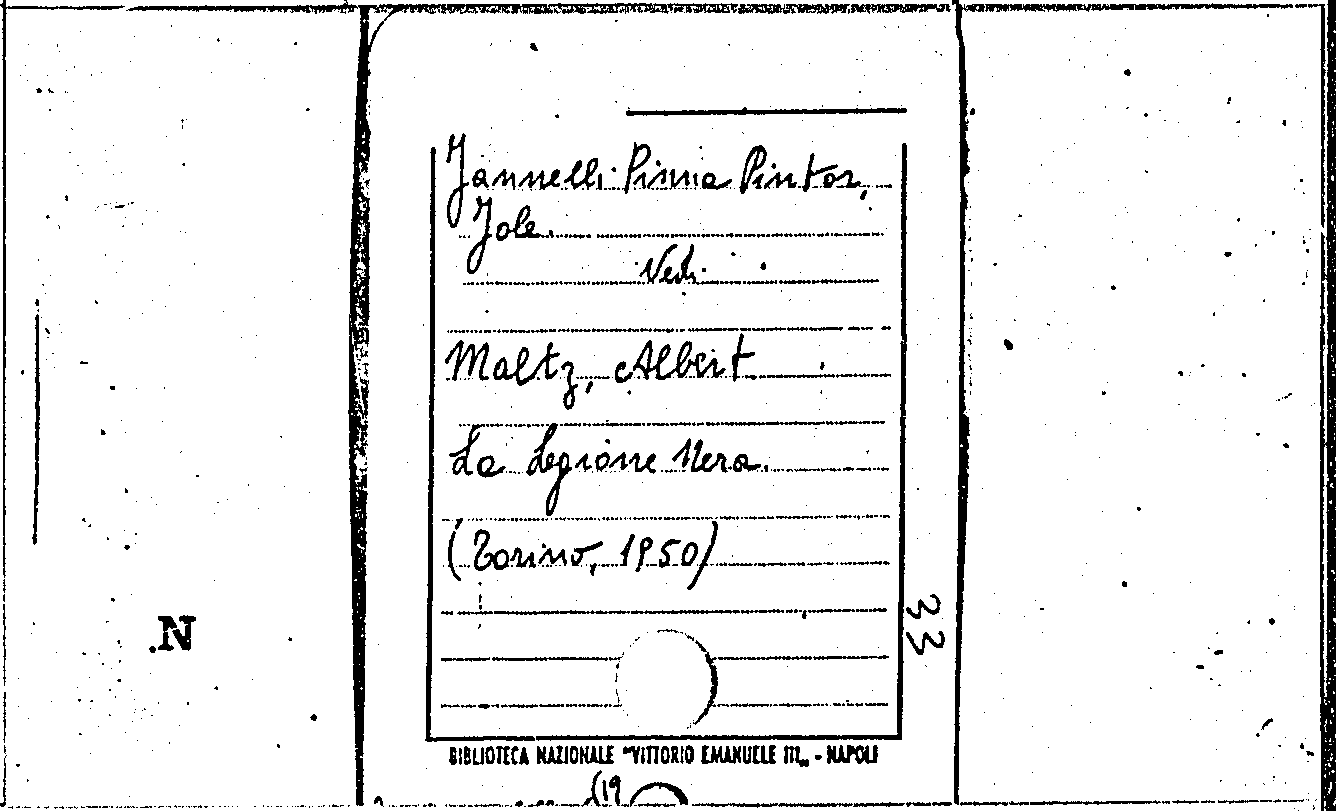 Jannelli Pinna Pintor,
Jole.
Vedi
Maltz, Albert
La Legione Nera.
(Torino, 1950)
33
.N
BIBLIOTECA NAZIONALE "VITTORIO EMANUELE III„ - NAPOLI
(19